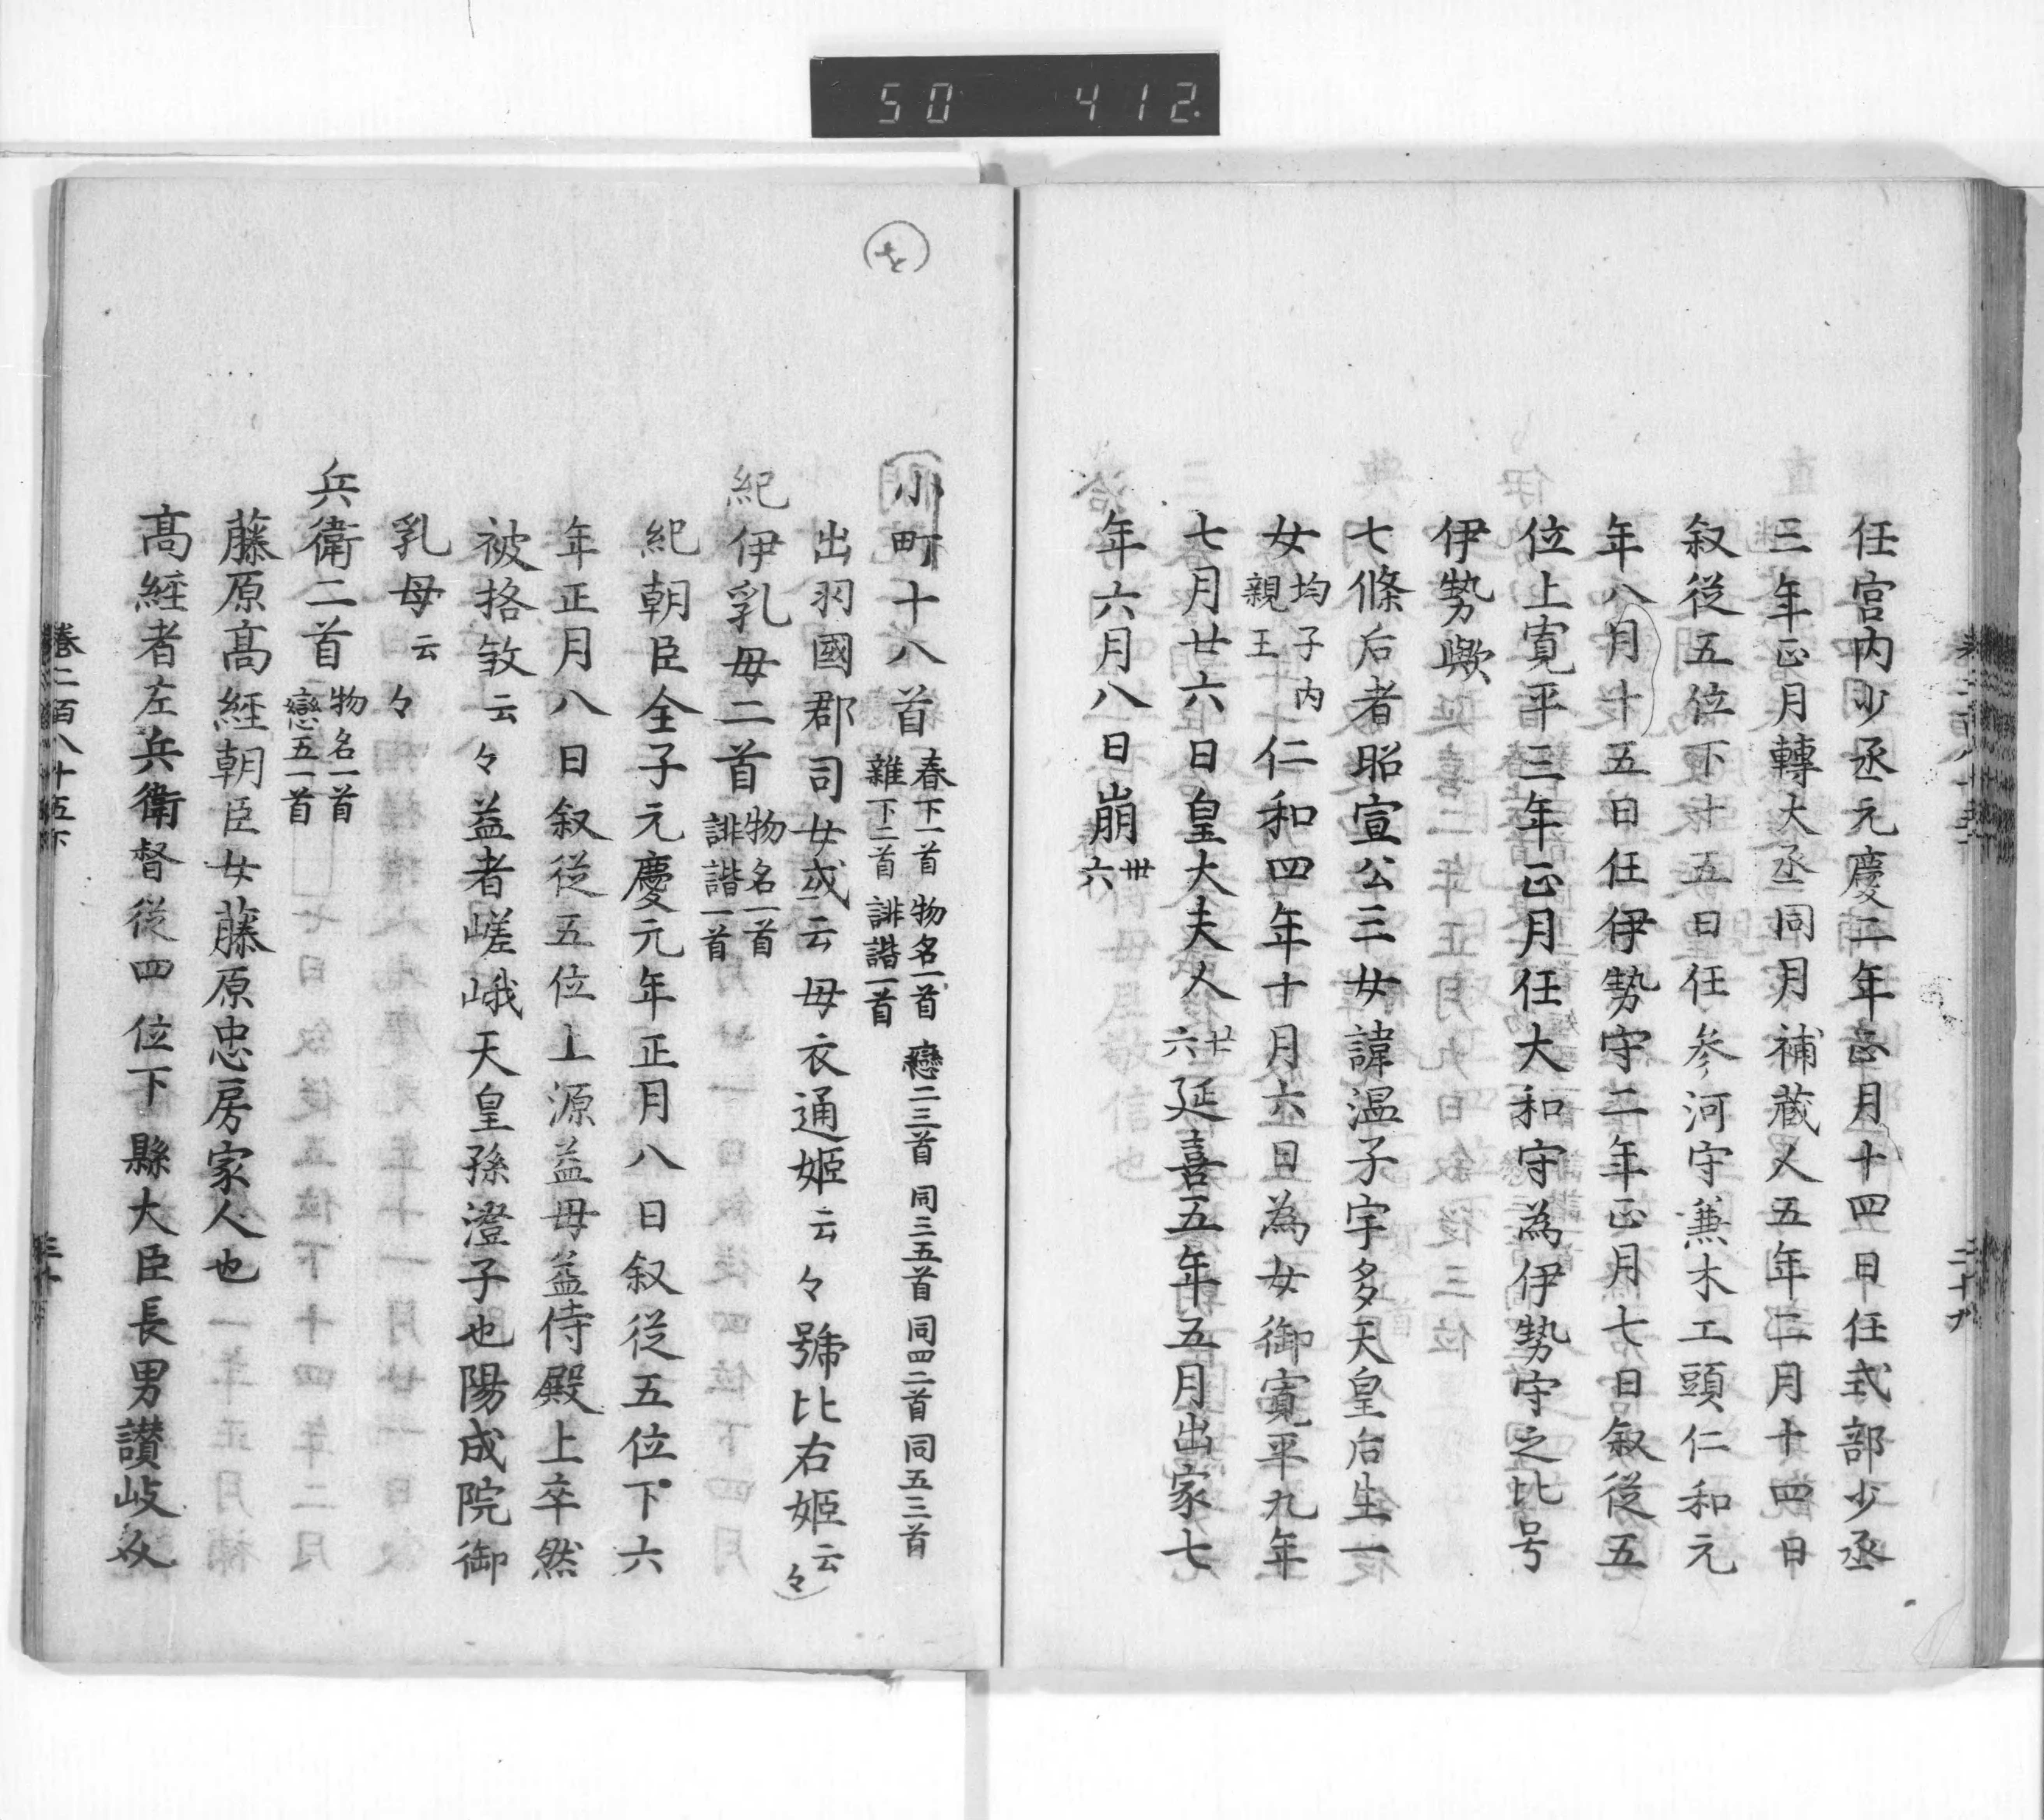 50 412.
任宮内少丞元慶二年正月十四日任式部少丞
三年正月轉大丞同月補蔵人五年二月十四日
叙従五位下十五日任参河守兼木工頭仁和元
年八月十五日任伊勢守二年正月七日叙従五
位上寛平三年正月任大和守為伊勢守之比号
伊勢歟
七條后者昭宣公三女諱温子宇多天皇后生一
女均子内親王仁和四年十月六日為女御寛平九年
七月廿六日皇大夫人廿六延喜五年五月出家七
年六月八日崩卅六
小町十八首春下一首 物名一首 戀二三首 同三五首 同四二首 同五三首
雜下二首 誹諧一首
出羽國郡司女或云母衣通姫云々號比右姫云々
紀伊乳母二首物名一首
誹諧一首
紀朝臣全子元慶元年正月八日叙従五位下六
年正月八日叙従五位上源益母益侍殿上卒然
被挌敦云々益者嵯峨天皇孫澄子也陽成院御
乳母云々
兵衛二首物名一首
戀五一首
藤原高経朝臣女藤原忠房家人也
高経者左兵衛督従四位下縣大臣長男讃岐
巻二百八十五下
三十
二十九